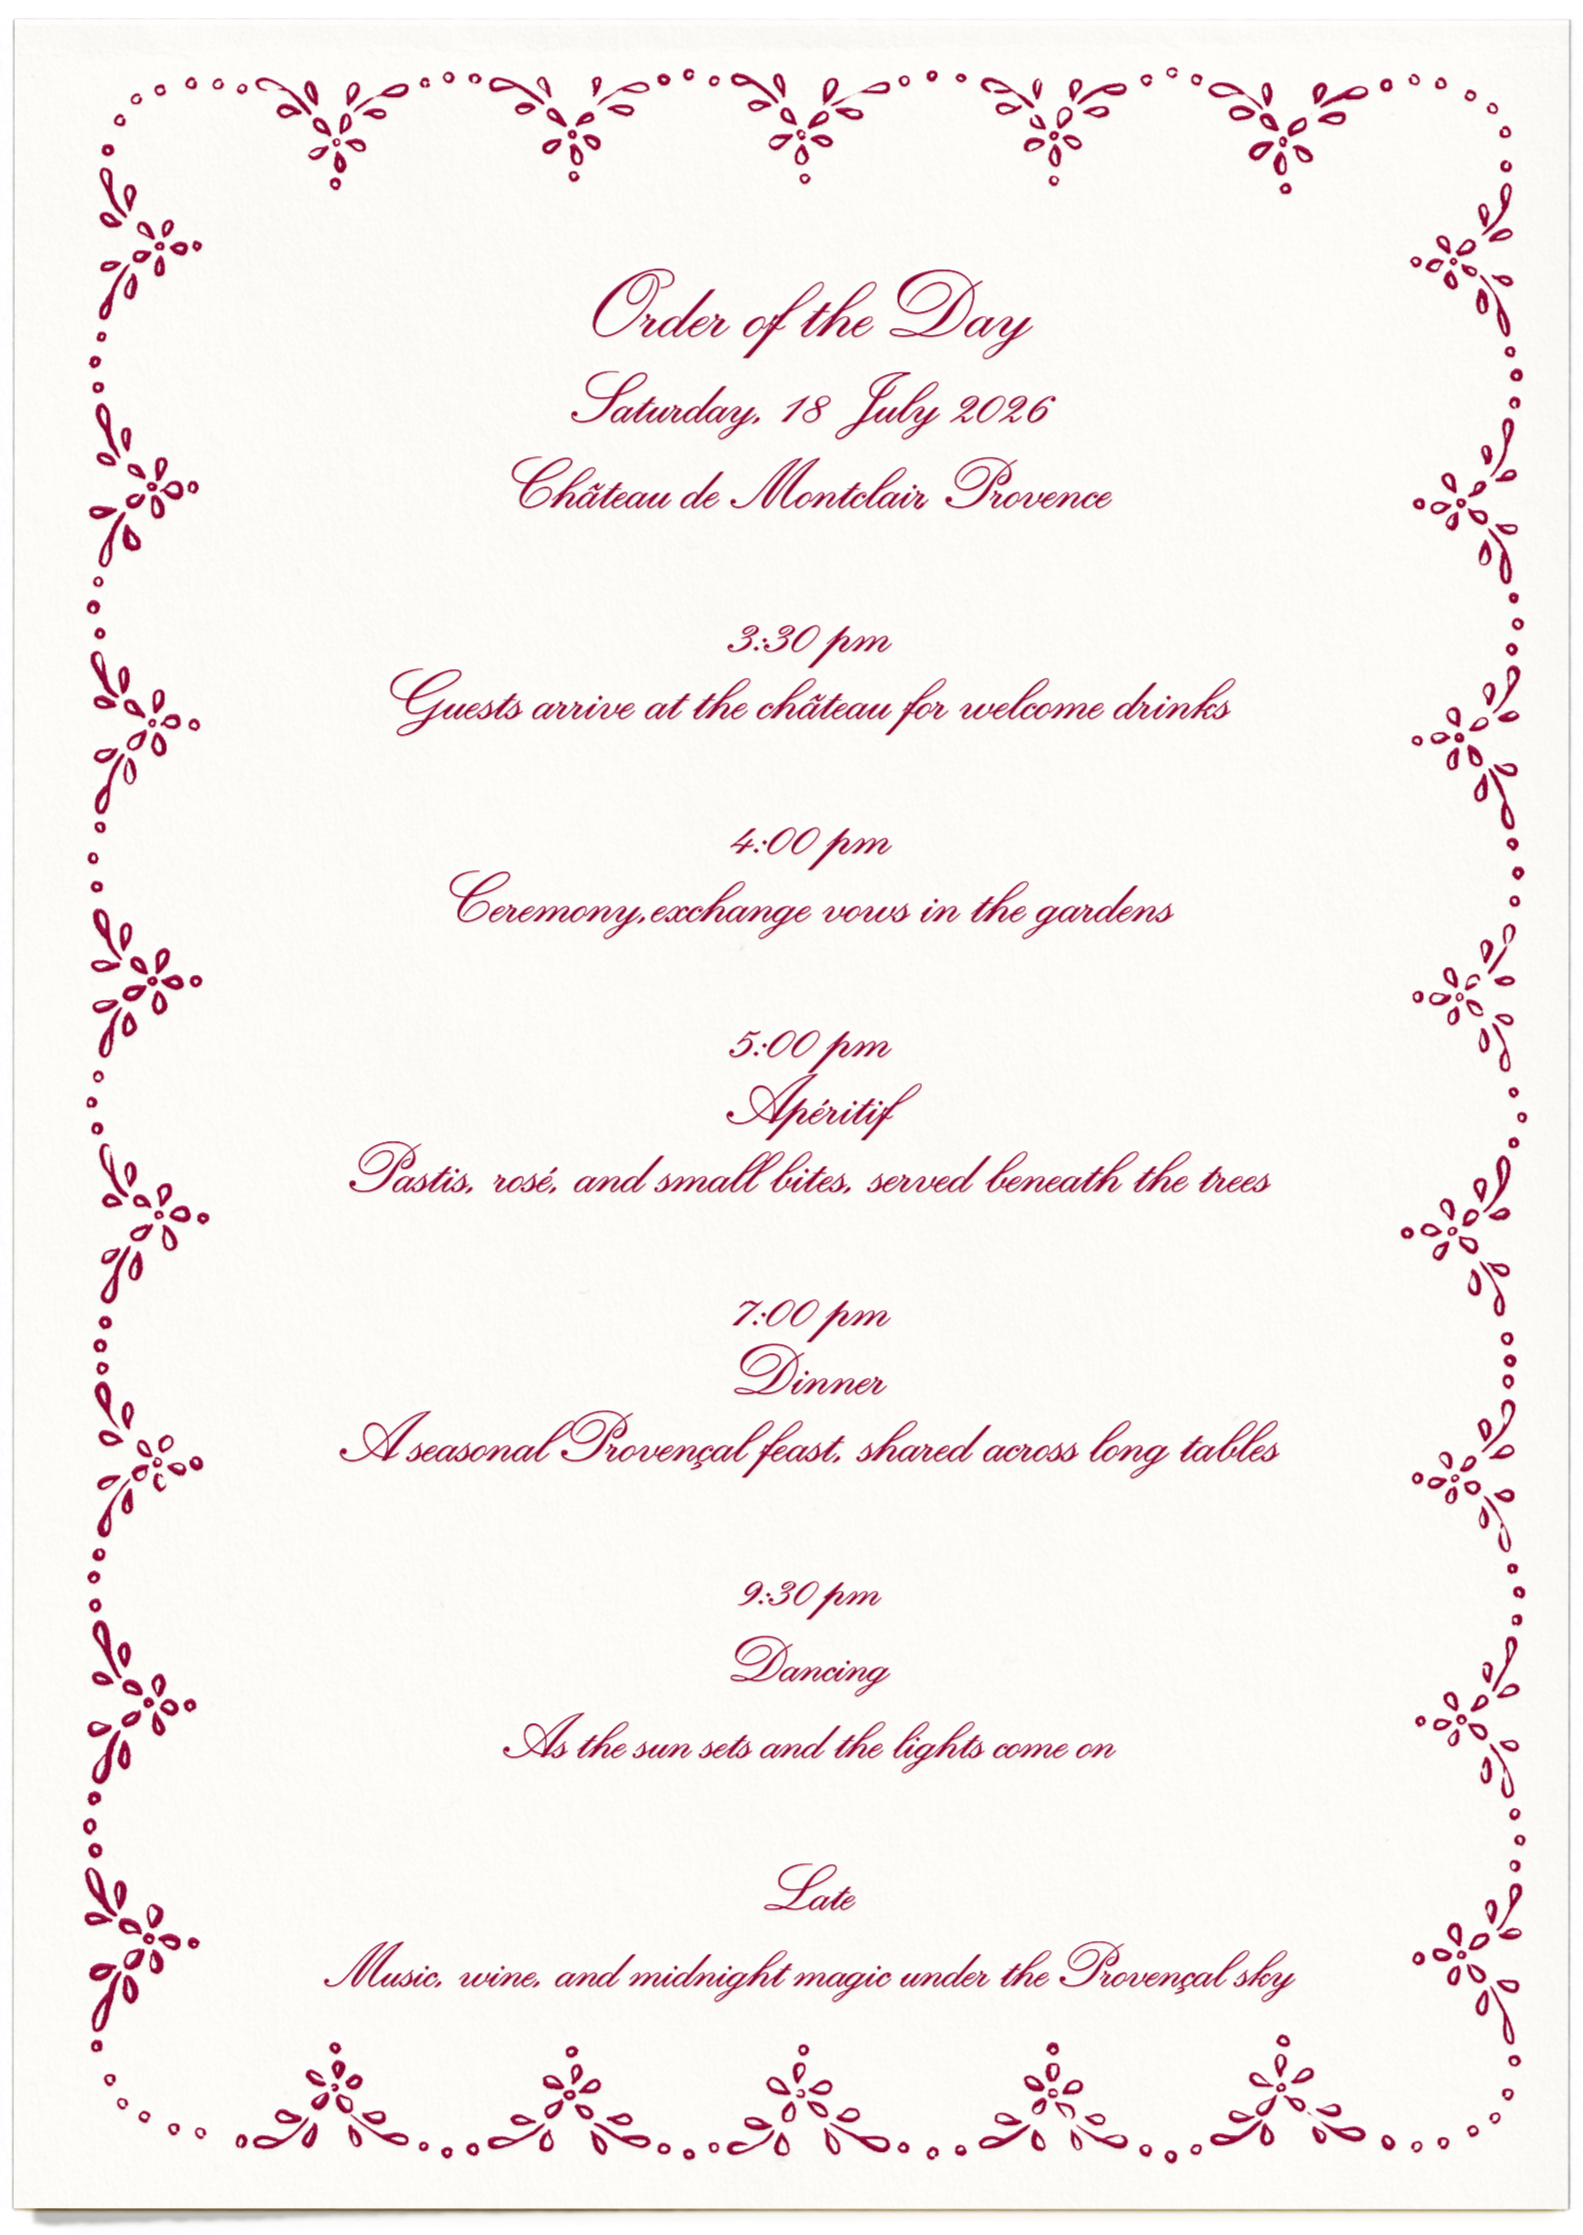 Order of the Day
Saturday, 18 July 2026
Château de Montclair Provence
3:30 pm
Guests arrive at the château for welcome drinks
4:00 pm
Ceremony,exchange vows in the gardens
5:00 pm
Apéritif
Pastis, rosé, and small bites, served beneath the trees
7:00 pm
Dinner
A seasonal Provençal feast, shared across long tables
9:30 pm
Dancing
As the sun sets and the lights come on
Late
Music, wine, and midnight magic under the Provençal sky